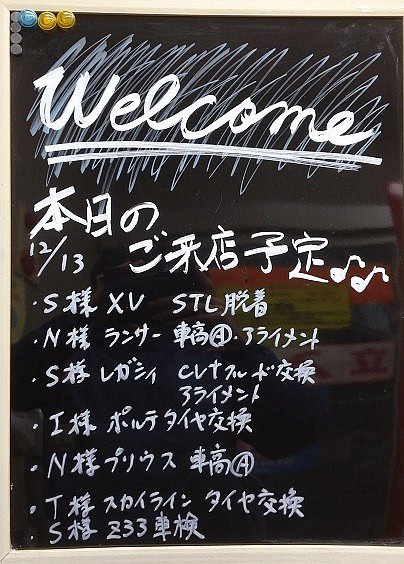 Welcome
本日の
12/13 ご来店予定♪♪
・S様 XV STL脱着
・N様 ランサー 車高Ⓐ・アライメント
・S様 レガシィ CLナフルード交換
アライメント
・I様 ポルテ タイヤ交換
・N様 プリウス 車高Ⓐ
・T様 スカイライン タイヤ交換
S様 Z33 車検